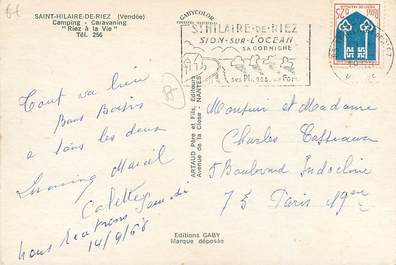 SAINT-HILAIRE-DE-RIEZ (Vendée)
Camping - Caravaning
"Riez à la Vie"
Tél. 256
GABYCOLOR
ST HILAIRE-DE-RIEZ
SION-SUR-L'OCEAN
SA CORNICHE
ses Plages
Tout va bien
Bons Baisers
à tous les deux
Marcel
Colette
nous rentrons jeudi
14/9/66
ARTAUD Père et Fils, Editeurs
Avenue de la Close - NANTES
Monsieur et Madame
Charles
5 Boulevard Indochine
75 Paris 19ème
Editions GABY
Marque déposée